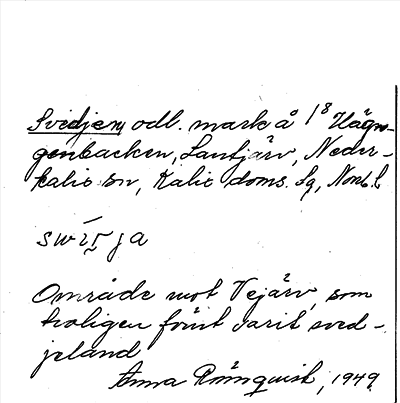 Svedjen, odl. mark å 1⁸ Hägn-
genbacken, Lantjärv, Neder-
kalix sn, Kalix doms. Sg, Norrb. l.
Område mot Vejärv, som
troligen förut varit sved-
jeland
Anna Rönnquist, 1949.